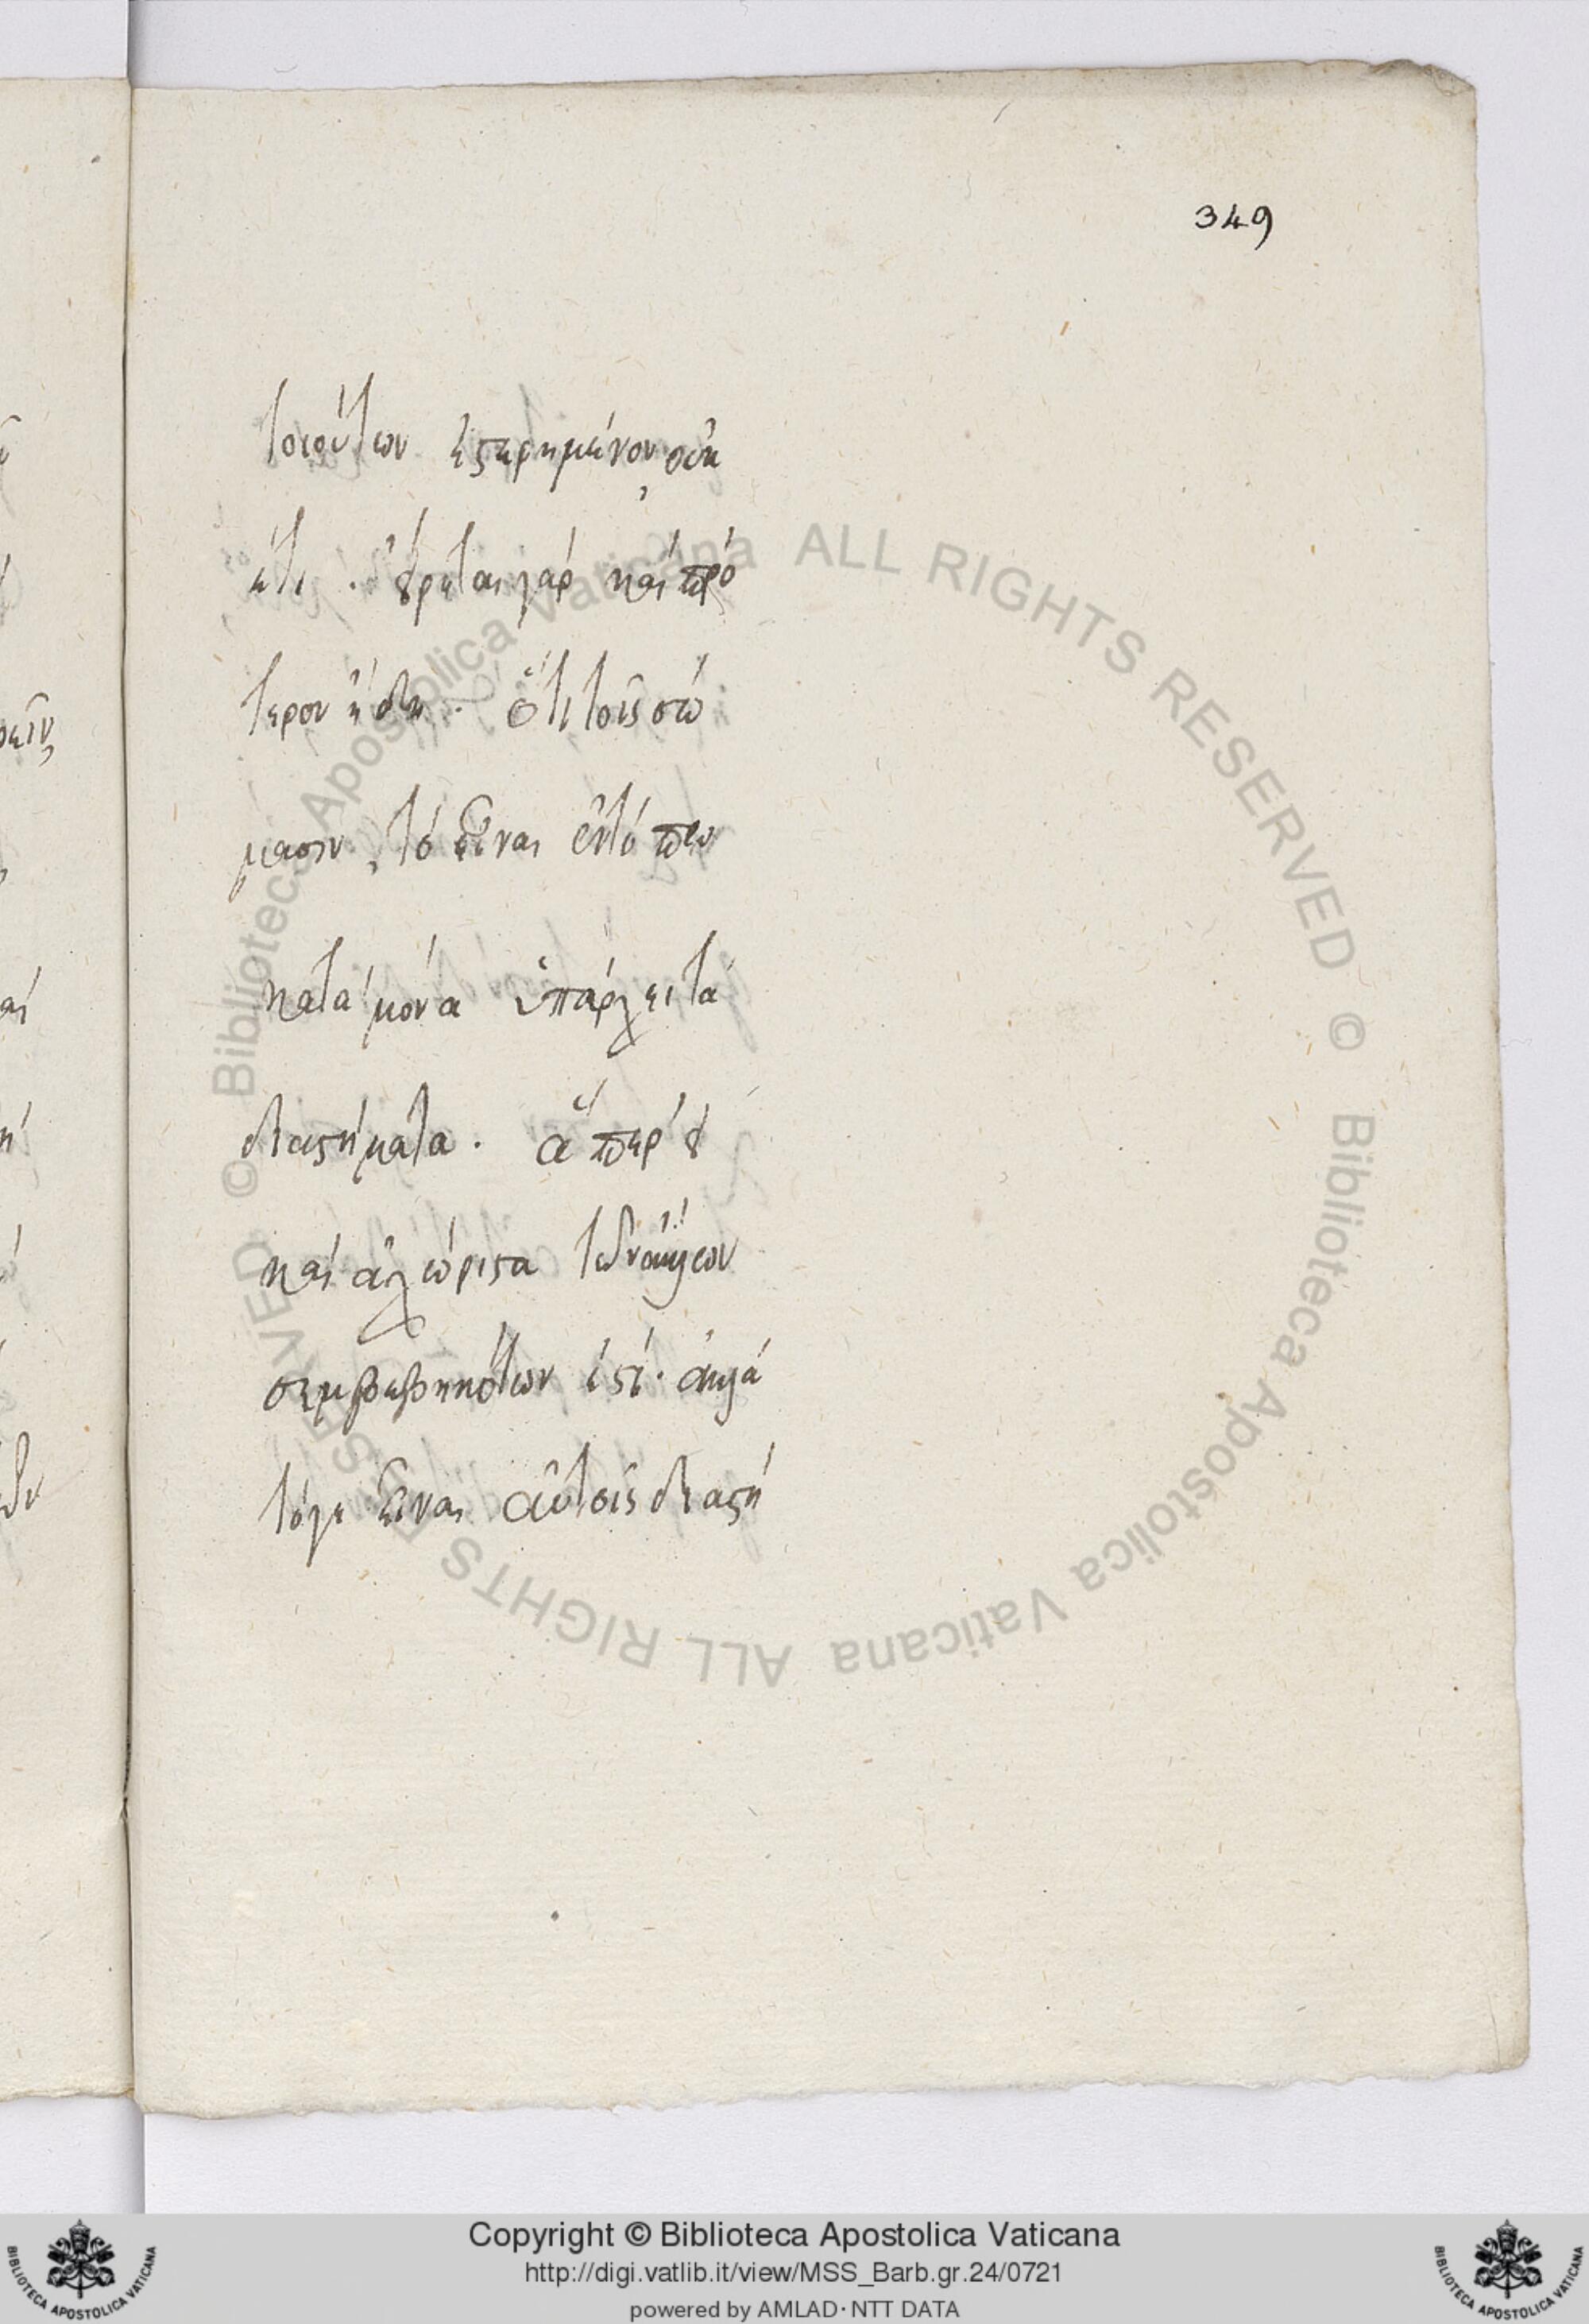 349
τοιούτων ἐστερημένον, οὐκ
έτι. εἴρηται γὰρ καὶ πρό
τερον ἤδη. ὅτι τοῖς σώ
μασιν, τὸ εἶναι ἐν τόπῳ
κατὰ μόνα ὑπάρχει τὰ
διαστήματα. ἅπερ εἰ
καὶ ἀχώριστα τῶν ἄλλων
συμβεβηκότων ἐστί. ἀλλὰ
τό γε εἶναι αὐτοῖς διαστή
© Biblioteca Apostolica Vaticana ALL RIGHTS RESERVED © Biblioteca Apostolica Vaticana ALL RIGHTS RESERVED
Copyright © Biblioteca Apostolica Vaticana
http://digi.vatlib.it/view/MSS_Barb.gr.24/0721
powered by AMLAD·NTT DATA
BIBLIOTECA APOSTOLICA VATICANA
BIBLIOTECA APOSTOLICA VATICANA